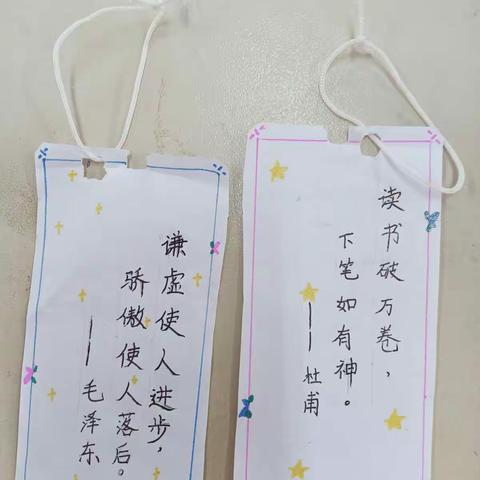 谦虚使人进步，
骄傲使人落后。
——毛泽东
读书破万卷，
下笔如有神。
——杜甫